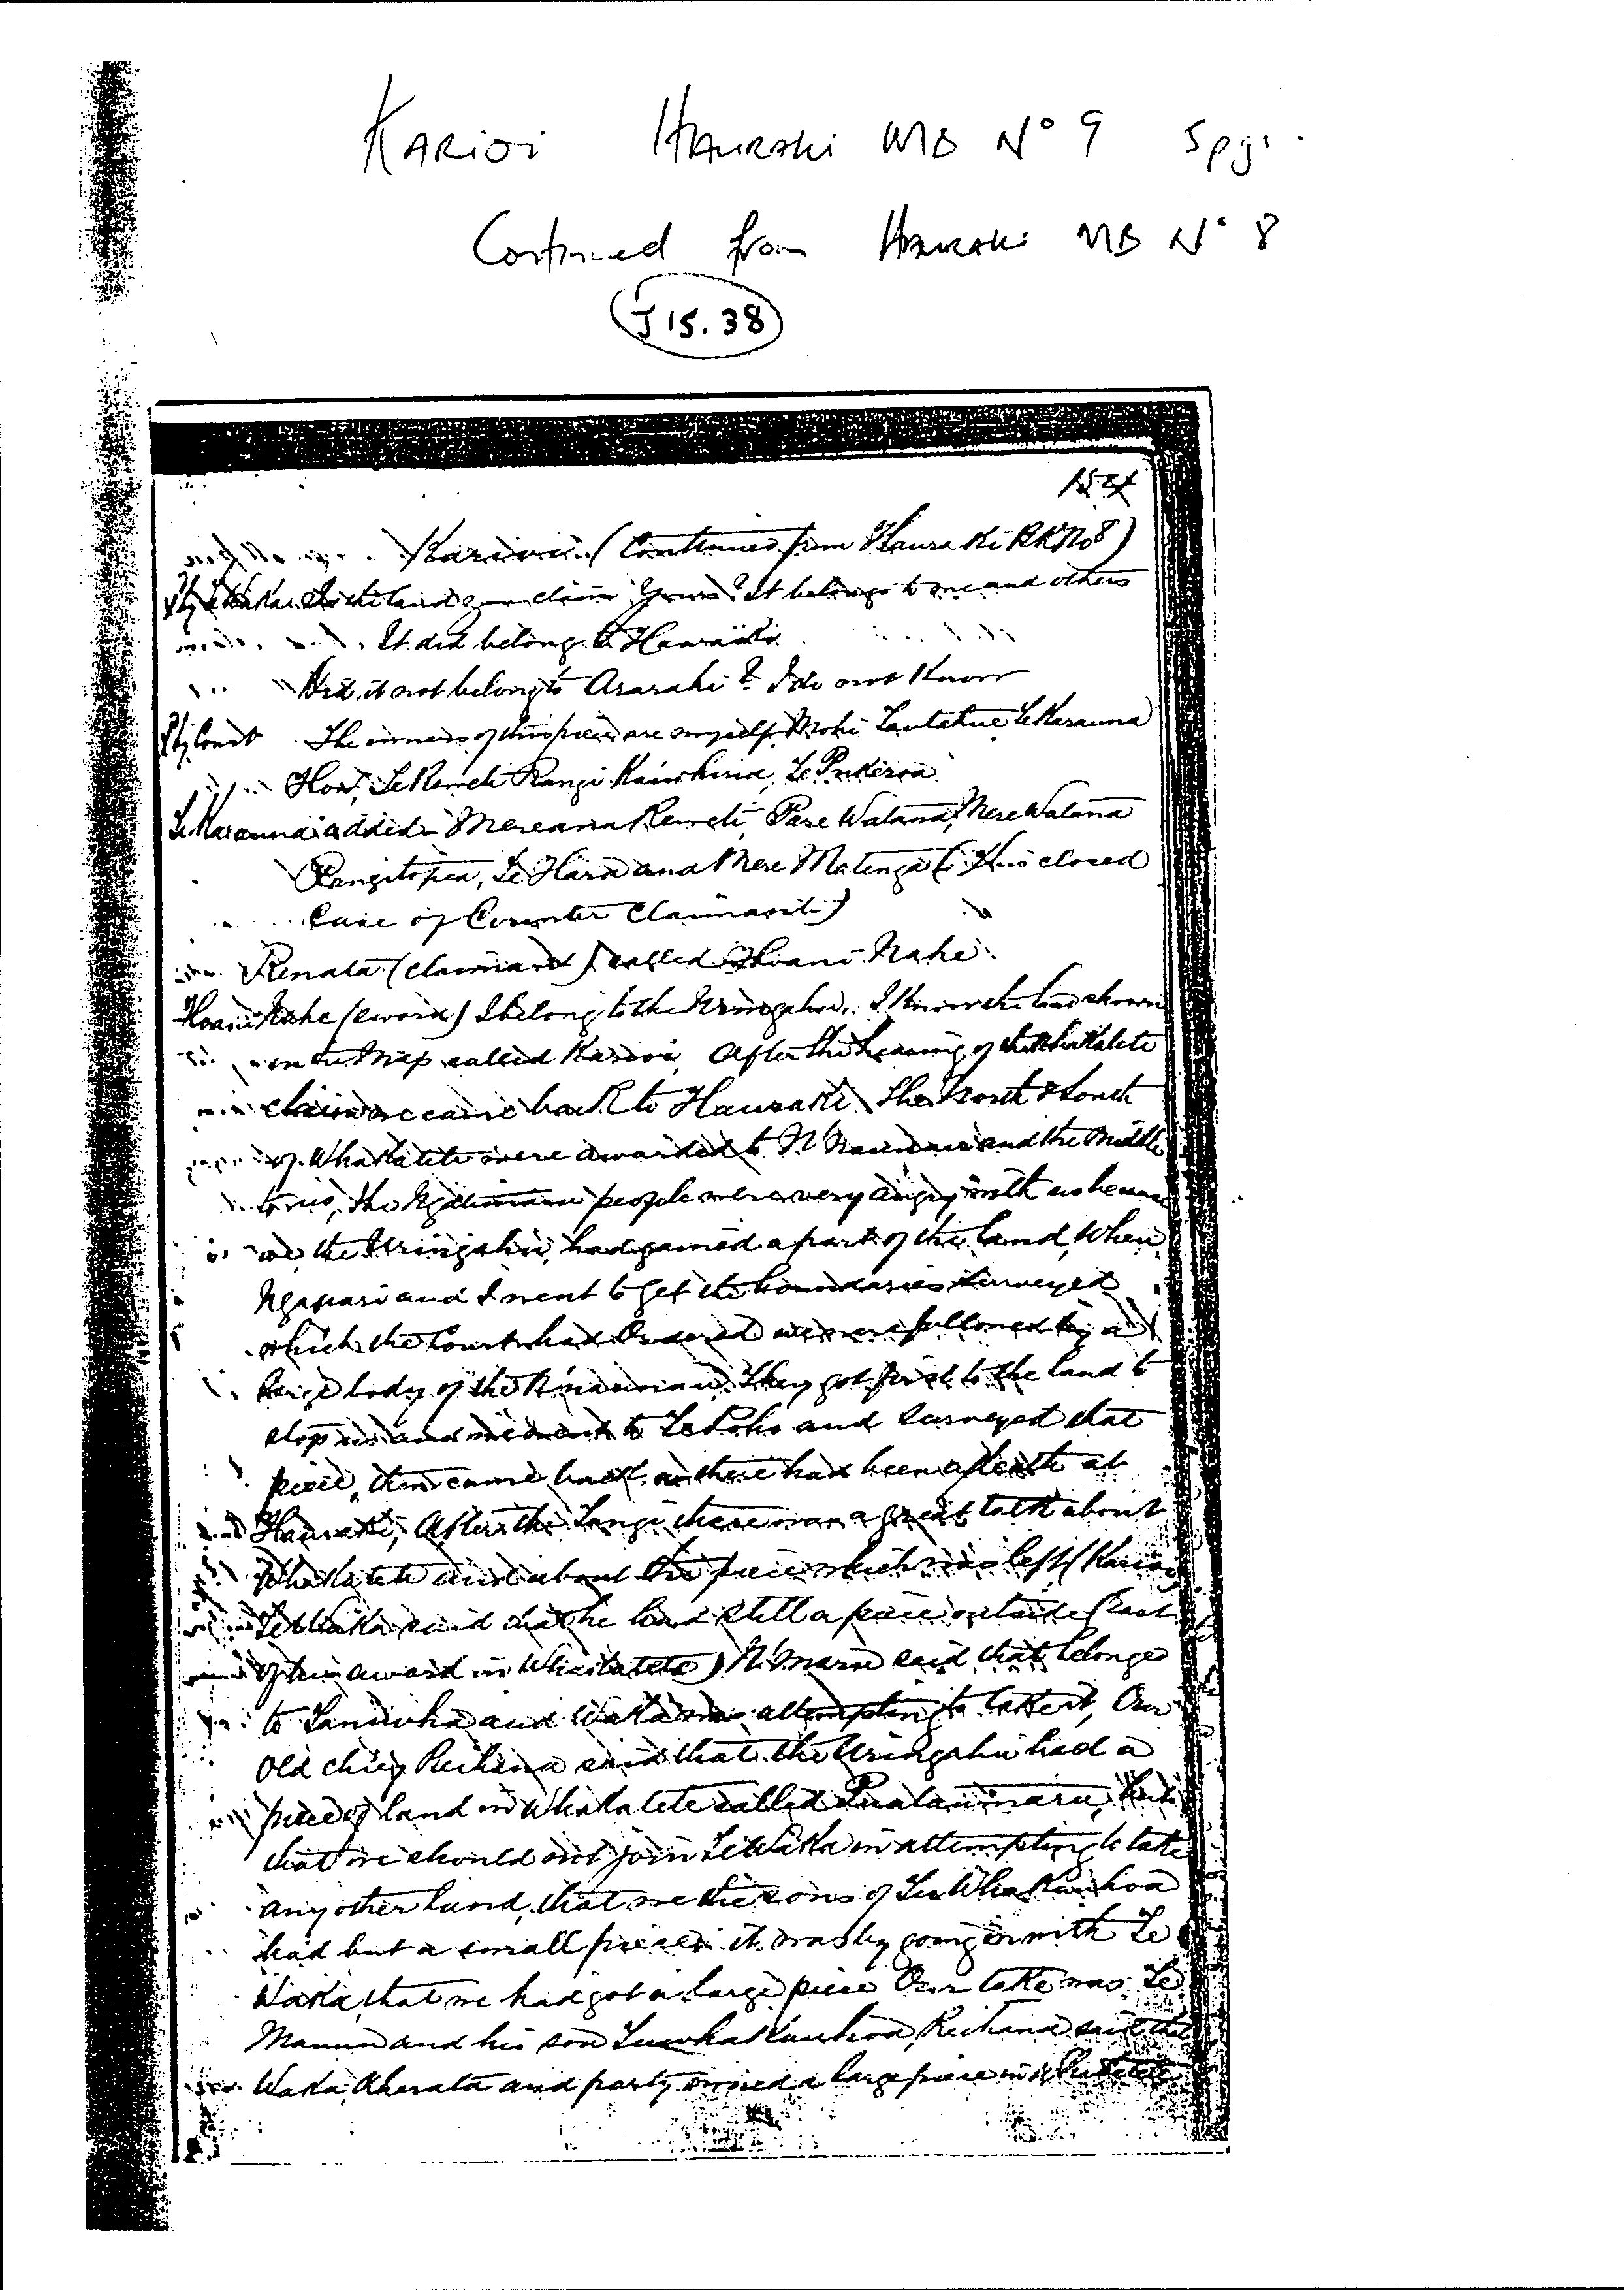 KARIOI HAURAKI MB N° 9 5 pgs.
Continued from HAURAKI MB N° 8
J 15.38
Karioi (Continued from Hauraki BK No 8)
By Te Waka Is the land you claim Yours? It belongs to me and others
It did belong to
Did it not belong to Ararahi? I do not Know
By Court The owners of this piece are myself, Te Karauna
Te Karauna added Mereana Pare Watana, Mere Watana
Rangitopea, Te Hara and Mere Matenga (This closed
Case of Counter Claimants)
Renata (claimant) called Hoani Nahe
Hoani Nahe (sworn) I belong to the Uringahu. I Know the land shown
on the Map called Karioi. After the hearing of the Whakatete
claim we came back to Hauraki. The North & South
of Whakatete were awarded to N' and the Middle
to us, the people were very angry with us because
we the Uringahu, had gained a part of the land, When
Ngapari and I went to get the boundaries surveyed
which the Court had Ordered we were followed by a
large body of the They got first to the land to
stop us and we went to and surveyed that
piece, then came back as there had been a death at
Hauraki, After the Tangi there was a great talk about
Whakatete and about the piece which was left (Karioi
Te Waka said that he had still a piece outside (East
of his award in Whakatete) N' Maru said that belonged
to Taniwha and Waka was attempting to take it, Our
old chief Reihana said that the Uringahu had a
piece of land in Whakatete called but
that we should not join Te Waka in attempting to take
any other land, that we the sons of
had but a small piece. it was by going in with Te
Waka, that we had got a large piece Our take was Te
and his son Reihana said that
Waka, Aherata and party owned a large piece in Whakatete